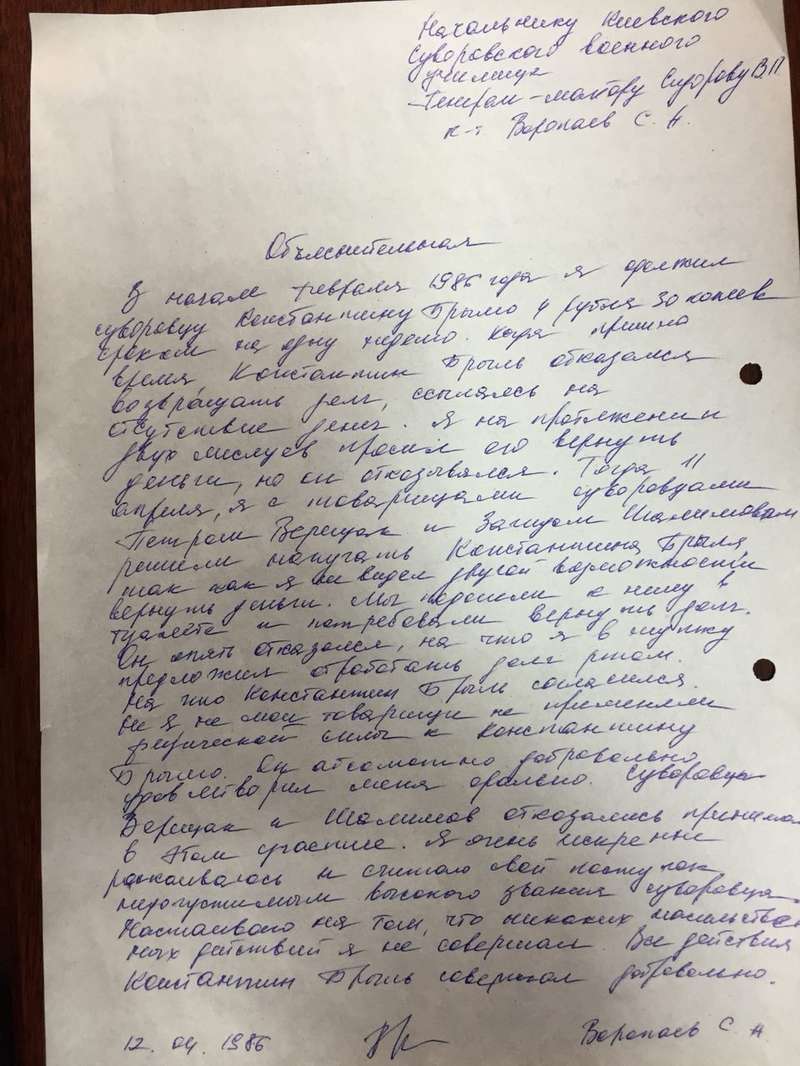 Начальнику Киевского
Суворовского военного
училища
Генерал-майору Сидорову В П
к-т Воропаев С. А.
Объяснительная
В начале февраля 1986 года я одолжил
суворовцу Константину Брылю 4 рубля 30 копеек
сроком на одну неделю. Когда пришло
время Константин Брыль отказался
возвращать долг, ссылаясь на
отсутствие денег. Я на протяжении
двух месяцев просил его вернуть
деньги, но он отказывался. Тогда 11
апреля, я с товарищами суворовцами
Петром Верещак и Шалимовым
решили напугать Константина Брыля
так как я не видел другой возможности
вернуть деньги. Мы подошли к нему в
туалете и потребовали вернуть долг.
Он опять отказался, на что я в шутку
предложил отработать долг ртом.
На что Константин Брыль согласился.
Не я не мои товарищи не применяли
физической силы к Константину
Брылю. Он абсолютно добровольно
удовлетворил меня орально. Суворовцы
Верещак и Шалимов отказались принимать
в этом участие. Я очень искренне
раскаиваюсь и считаю свой поступок
недопустимым высокого звания суворовца.
Настаиваю на том, что никаких насильствен
ных действий я не совершал. Все действия
Константин Брыль совершал добровольно.
12. 04. 1986 Воропаев С. А